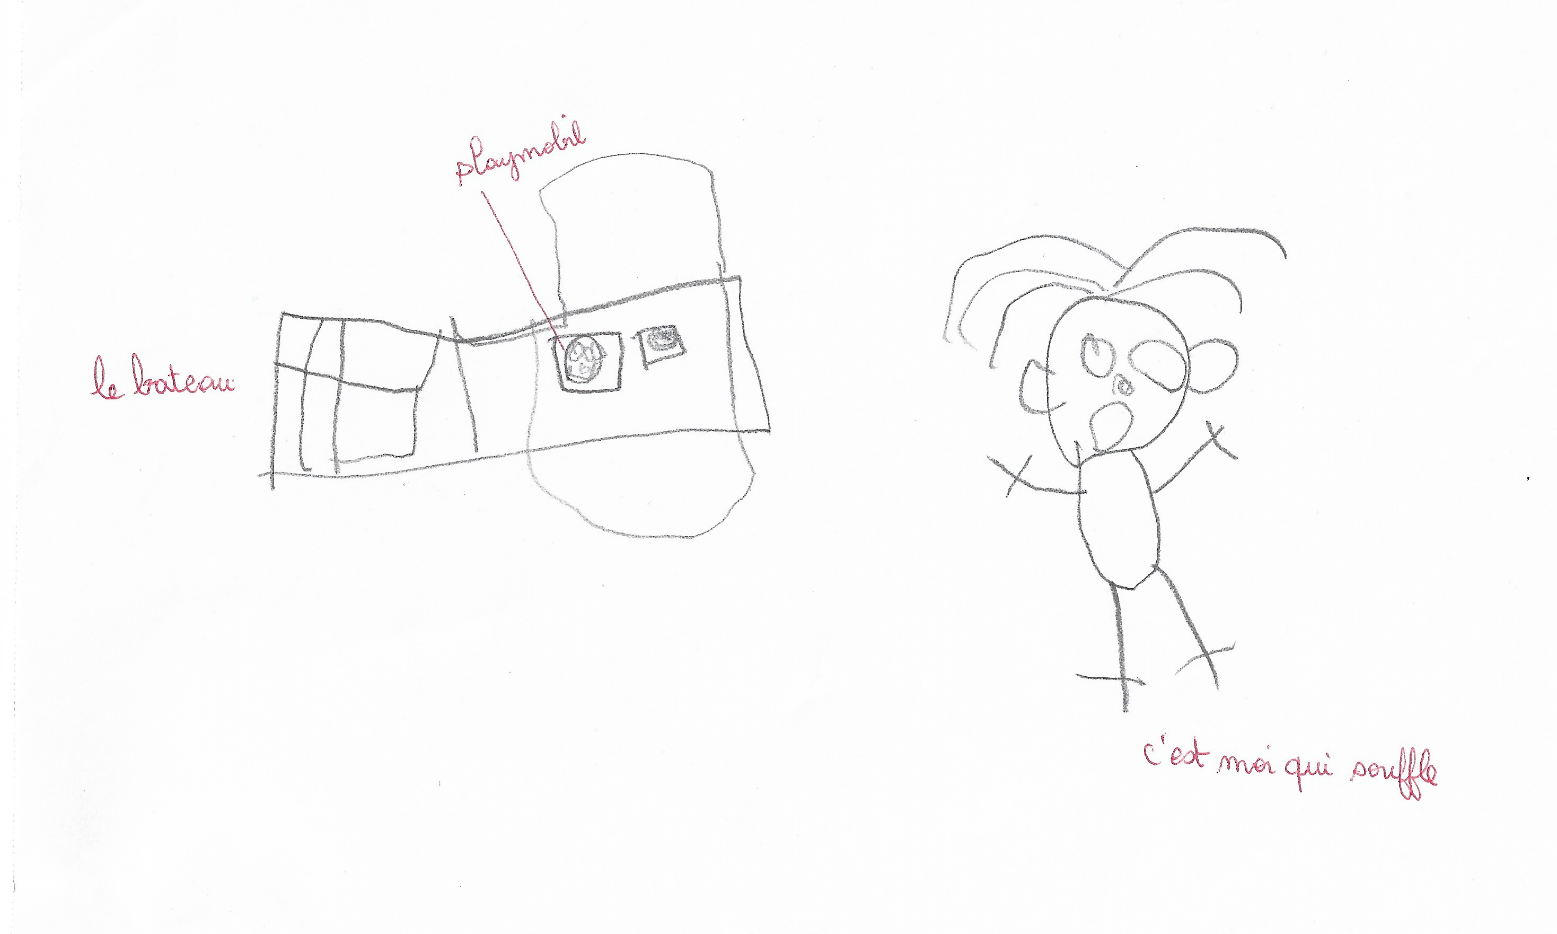 playmobil
le bateau
c'est moi qui souffle